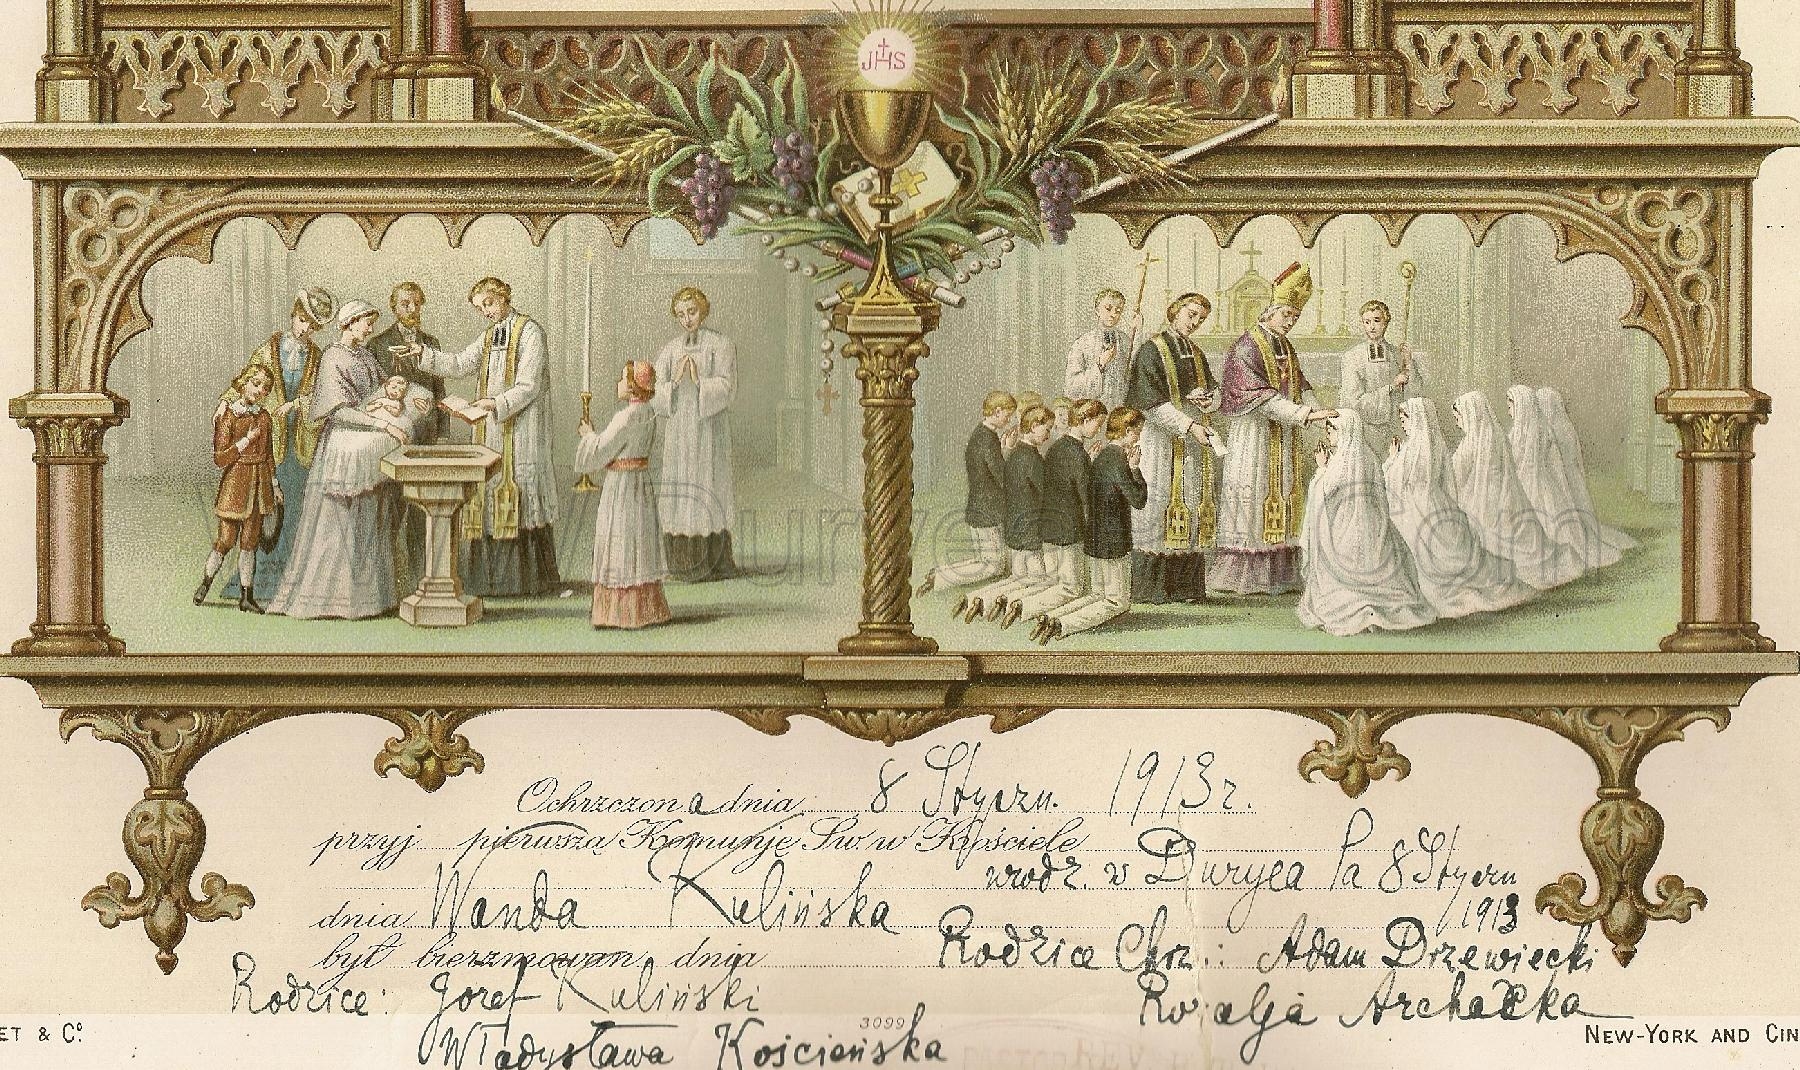 JHS
www.Duryea PA.com
Ochrzczona dnia 8 Styczn. 1913 r.
przyj pierwszą Komunję Św. w Kościele
urodz. w Duryea Pa 8 Styczn
1913
dnia Wanda Kulińska
był bierzmowan dnia
Rodzice Chrz.: Adam Drzewiecki
Rodzice: Jozef Kuliński
Rozalja
Władysława Kościeńska
3099
ET & Cº.
NEW-YORK AND CIN